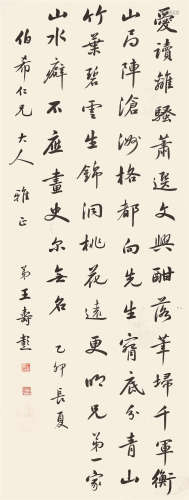 愛讀離騷蕭選文興酣落筆埽千軍衡
山局陣滄洲格都向先生底分青山
竹葉碧雲生錦洞桃花遠更明兄弟一家
山水癖不應畫史尔無名 乙卯長夏
伯希仁兄大人雅正 弟王壽彭